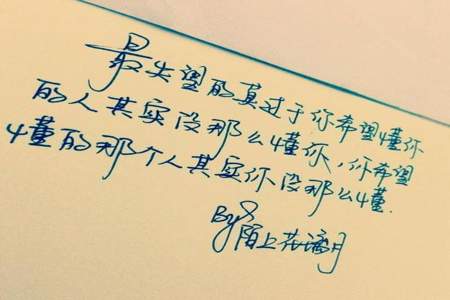 最失望的莫过于你希望懂你
的人其实没那么懂你，你希望
懂的那个人其实你没那么懂.
By 陌上花满月